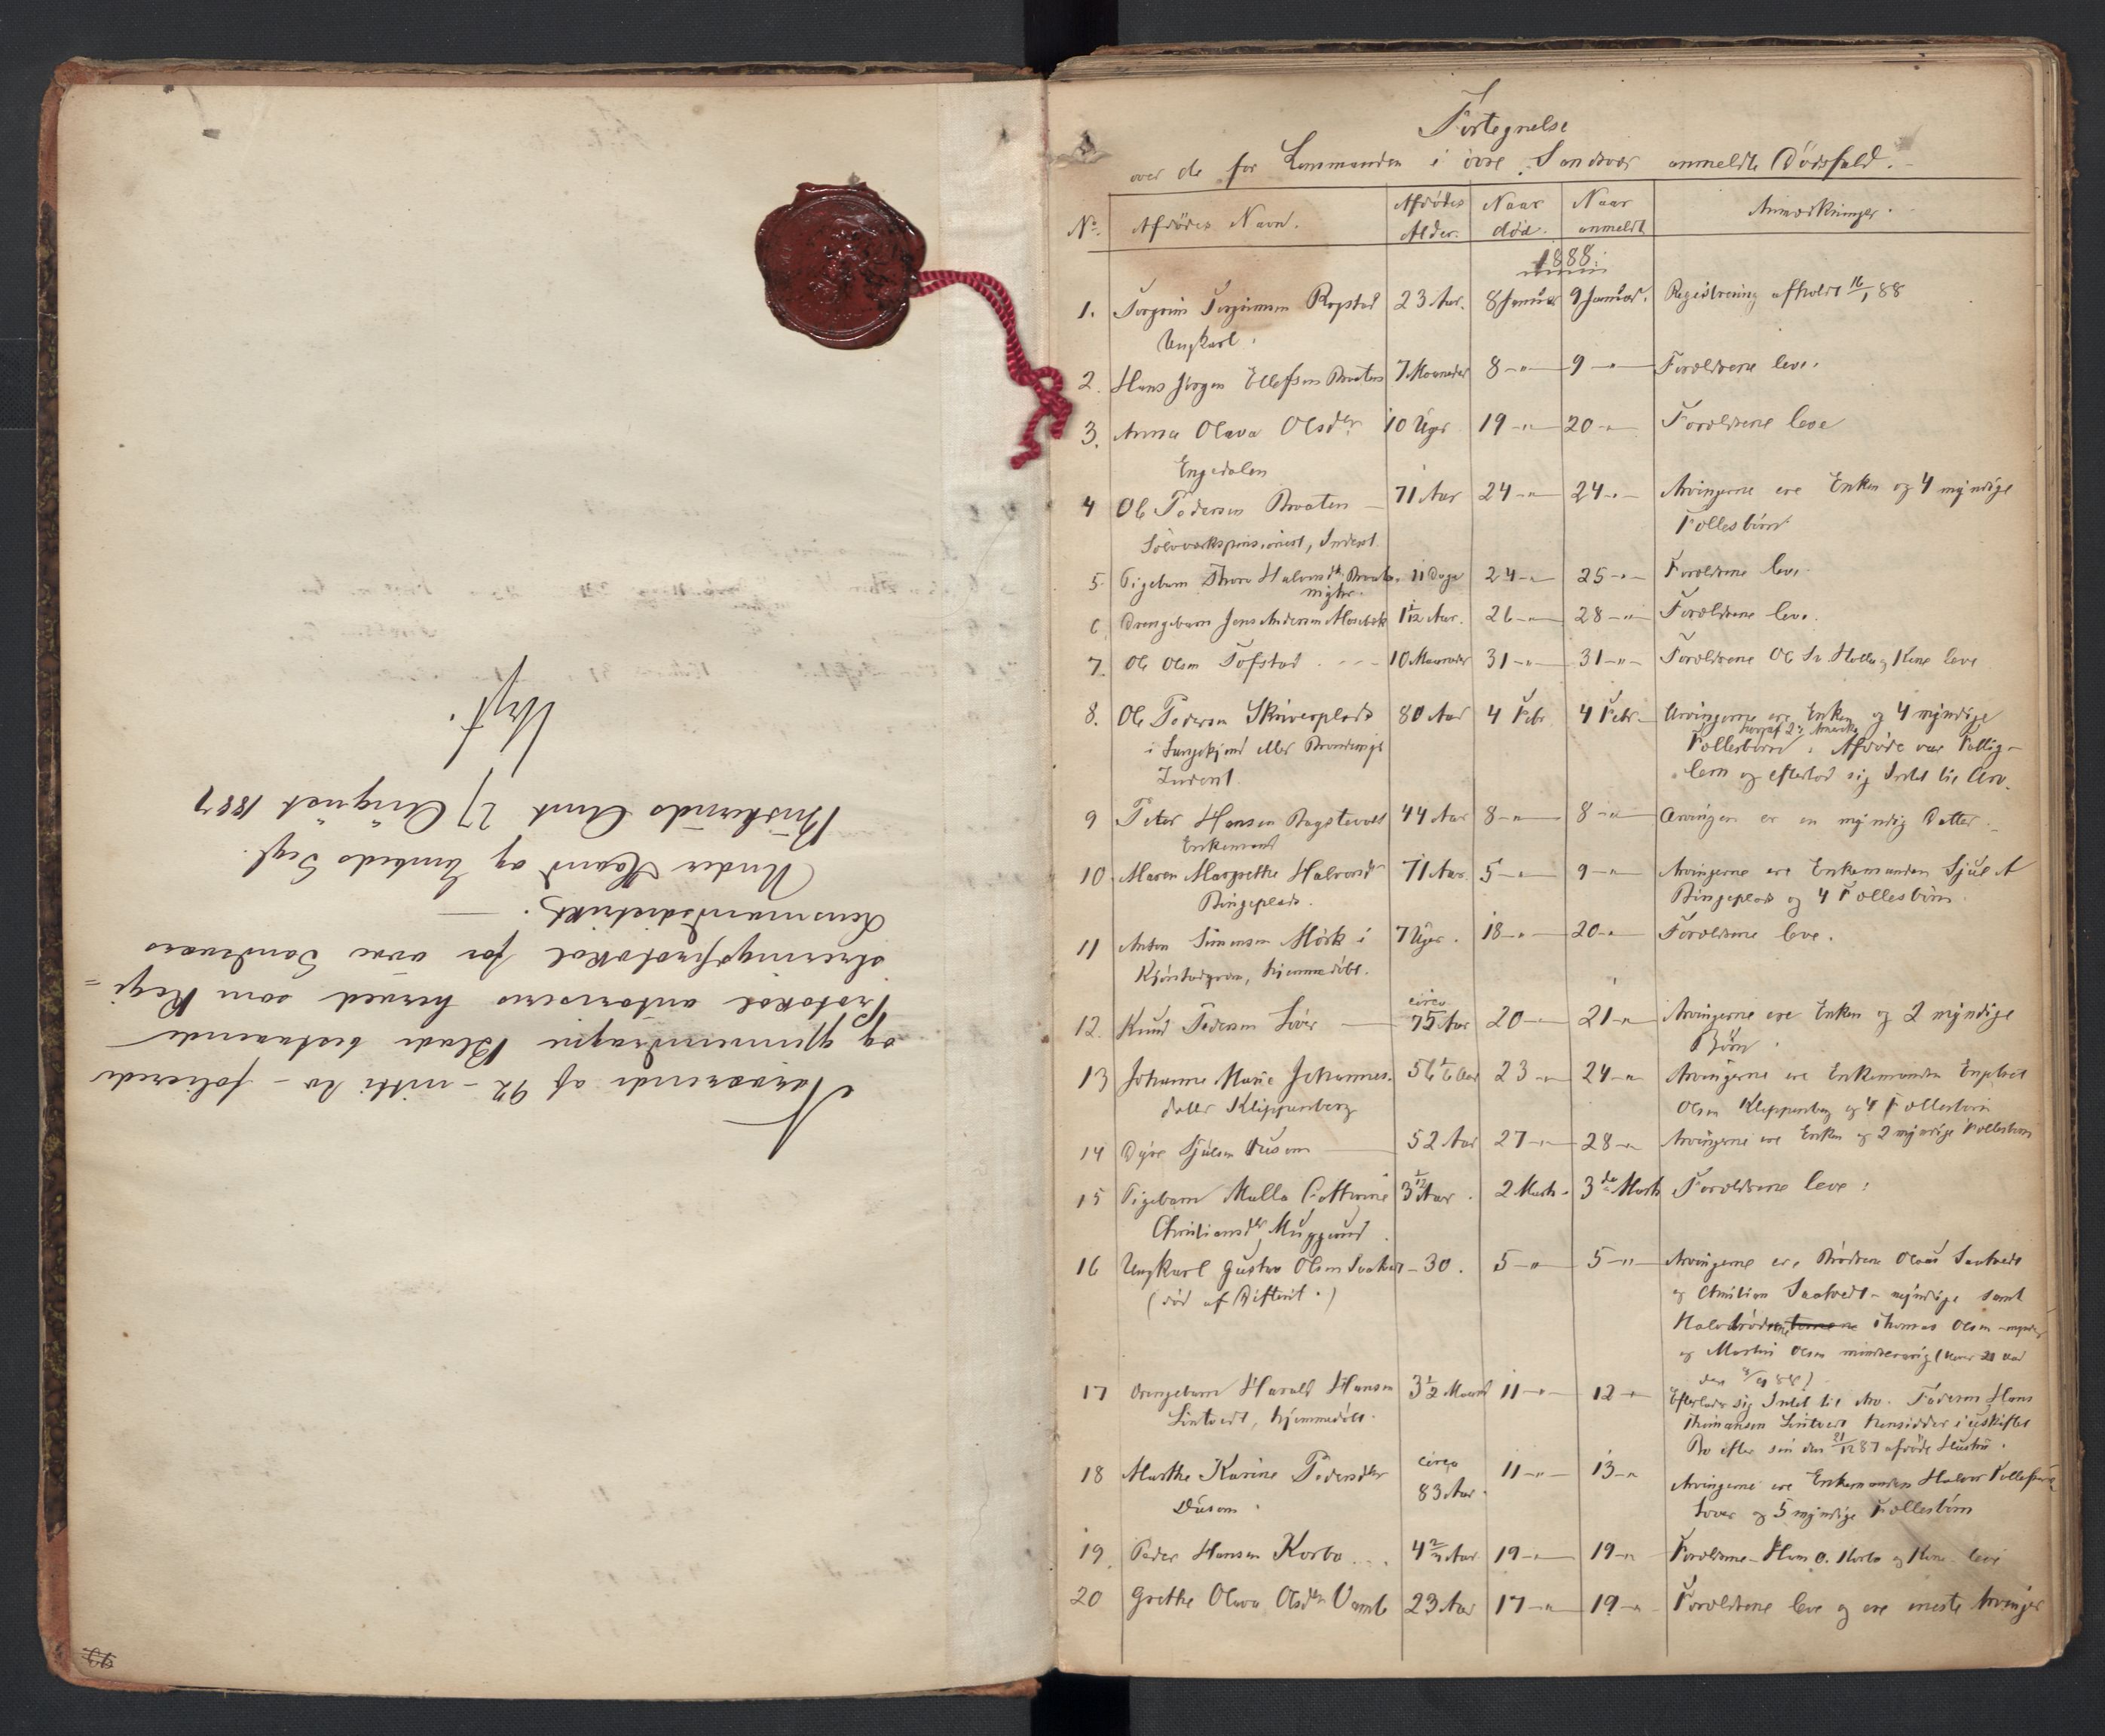 Nærværende af 92 - nitti to - folierede
og gjennemdragne Blade bestaaende
Protokol autoriseres herved som Regi=
streringsprotokol for øvre Sandsværs
Lensmandsdistrikt.
Under Haand og Embeds Segl.
Buskeruds Amt 27 August 1887
92
Fortegnelse
over de for Lensmanden i øvre Sandsvær anmeldte Dødsfald.
No. Afdødes Navn. Afdødes Alder. Naar død. Naar anmeldt Anmærkninger.
1888.
1. Torgrim Torgrimsen Rogstad 23 Aar. 8 Januar 9 Januar. Registrering afholdt 16/1 88
Ungkarl.
2. Hans Jørgen Ellefsen Braaten 7 Maaneder 8 -"- 9 -"- Forældrene leve.
3. Anna Olava Olsdtr 10 Uger 19 -"- 20 -"- Forældrene leve
Engedalen
4 Ole Pedersen Braaten 71 Aar 24 -"- 24 -"- Arvingerne ere Enken og 4 myndige
Sølvverkspensionist, Inderst. Fællesbørn
5. Pigebarn Thora Halvorsdtr Braate- 11 Dage 24 -"- 25 -"- Forældrene leve.
6 Drengebarn Jens Andersen Mosebæk 1 1/12 Aar. 26 -"- 28 -"- Forældrene leve.
7. Ole Olsen Tofstad 10 Maaneder 31 -"- 31 -"- Forældrene Ole og Kone leve
8. Ole Pedersen Skriverplads 80 Aar 4 Febr. 4 Febr. Arvingerne ere Enken og 4 myndige
i eller Fællesbørn hvoraf 2 i Amerika. Afdøde var Fattig-
Inderst. lem og efterlod sig Intet til Arv.
9 Peter Hansen Bagstevold 44 Aar 8 -"- 8 -"- Arvingen er en myndig Datter.
Enkemand
10. Maren Margrethe Halvorsdtr 71 Aar. 5 -"- 9 -"- Arvingerne ere Enkemanden Sjul A
Bingeplads. Bingeplads og 4 Fællesbørn.
11 Anton Simensen Mørk i 7 Uger. 18 -"- 20 -"- Forældrene leve.
hjemmedøbt.
12. Knud Pedersen Sver circa 75 Aar 20 -"- 21 -"- Arvingerne ere Enken og 2 myndige
Børn.
13 Johanne Marie Johannes- 56 1/6 Aar 23 -"- 24 -"- Arvingerne ere Enkemanden Engebret
datter Klippenberg Olsen Klippenberg og 4 Fællesbørn
14 Dyre Sjulsen Dusom 52 Aar 27 -"- 28 -"- Arvingerne ere Enken og 2 myndige Fællesbørn
15 Pigebarn Malla Cathrine 3 1/12 Aar. 2 Marts. 3de Marts Forældrene leve.
Christiansdtr Muggerud.
16 Ungkarl Gustav Olsen Saatvedt - 30. 5 -"- 5 -"- Arvingerne ere Brødrene Olaus Saatvedt
(død af Difterit.) og Christian Saatvedt - myndige samt
Halvbrødrene Thomas Olsen - myndig
og Martin Olsen mindreaarig (bliver 21 Aar
17 Drengebarn Harald Hansen 3 1/2 Maaned 11 -"- 12 -"- Efterlader sig Intet til Arv. Faderen Hans
Lintvedt, hjemmedøbt. Thomassen Lintvedt hensidder i uskiftet
Bo efter sin den 21/12 87 afdøde Hustru.
18 Marthe Karine Pedersdtr circa 83 Aar. 11 -"- 13 -"- Arvingerne ere Enkemanden Halvor
Dusom. og 5 myndige Fællesbørn
19. Peder Hansen Korbo 19 -"- 19 -"- Forældrene - Hans O. Korbo og Kone - leve
20 Grethe Olava Olsdtr Vamli 23 Aar 17 -"- 19 -"- Forældrene leve og ere eneste Arvinger